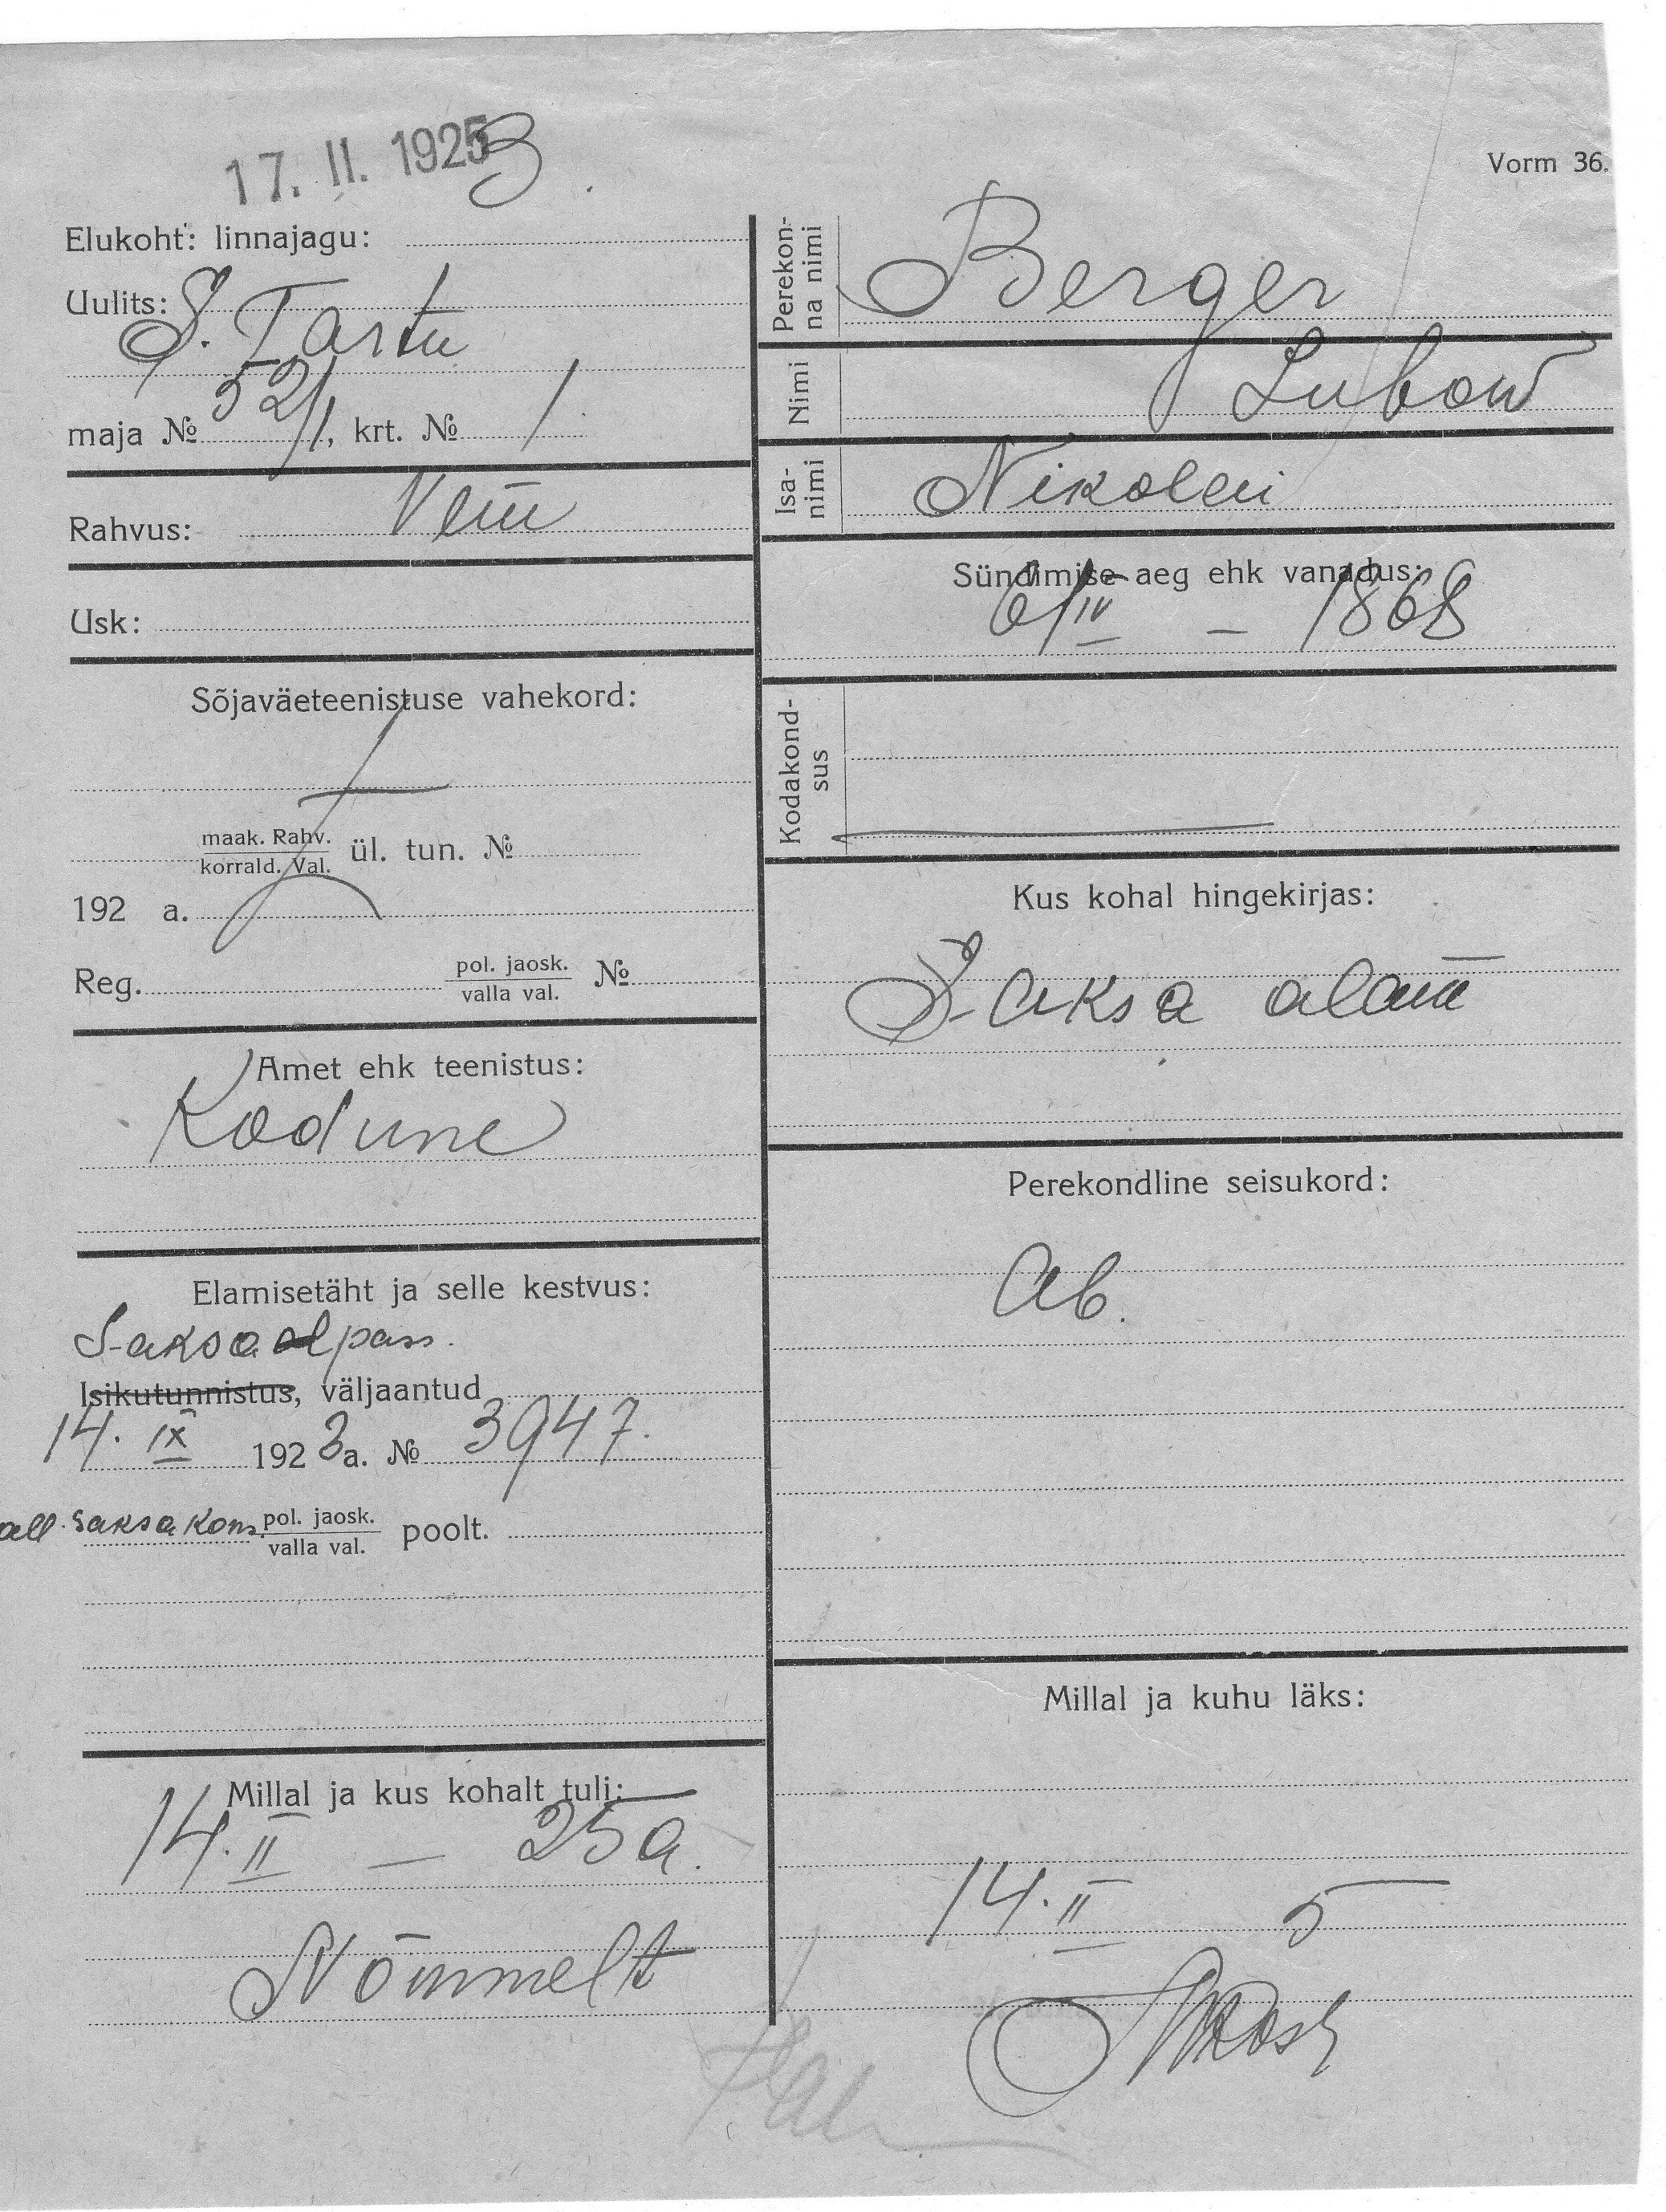 17. II. 1925
3
Vorm 36.
Elukoht: linnajagu:
Uulits: S. Tartu
maja № 52/1, krt. № 1
Rahvus: Vene
Usk:
Sõjaväeteenistuse vahekord:
maak. Rahv.
korrald. Val. ül. tun. №
192 a.
Reg. pol. jaosk. №
valla val.
Amet ehk teenistus:
Kodune
Elamisetäht ja selle kestvus:
Saksa pass.
Isikutunnistus, väljaantud
14. IX 1923 a. № 3947.
Tall. Saksa Kons. pol. jaosk. poolt.
valla val.
Millal ja kus kohalt tuli:
14. II — 25 a.
Nõmmelt
Perekon-
na nimi
Berger
Nimi
Lubow
Isa-
nimi
Nikolai
Sündimise aeg ehk vanadus:
6/IV — 1868
Kodakond-
sus
Kus kohal hingekirjas:
Saksa alam
Perekondline seisukord:
Ab.
Millal ja kuhu läks:
14. II 5